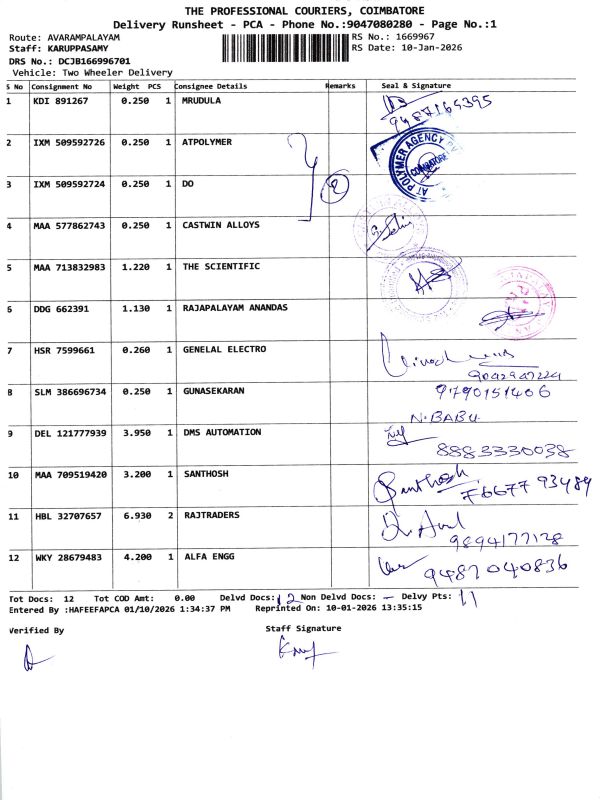 THE PROFESSIONAL COURIERS, COIMBATORE
Delivery Runsheet - PCA - Phone No.:9047080280 - Page No.:1
Route: AVARAMPALAYAM RS No.: 1669967
Staff: KARUPPASAMY RS Date: 10-Jan-2026
DRS No.: DCJB166996701
Vehicle: Two Wheeler Delivery
S No Consignment No Weight PCS Consignee Details Remarks Seal & Signature
1 KDI 891267 0.250 1 MRUDULA
9487169395
2 IXM 509592726 0.250 1 ATPOLYMER
AT POLYMER AGENCY
COIMBATORE
3 IXM 509592724 0.250 1 DO 2
4 MAA 577862743 0.250 1 CASTWIN ALLOYS
5 MAA 713832983 1.220 1 THE SCIENTIFIC
6 DDG 662391 1.130 1 RAJAPALAYAM ANANDAS
7 HSR 7599661 0.260 1 GENELAL ELECTRO
8 SLM 386696734 0.250 1 GUNASEKARAN 9790151406
N.BABU
9 DEL 121777939 3.950 1 DMS AUTOMATION
8883330038
10 MAA 709519420 3.200 1 SANTHOSH Santhosh
76677 93489
11 HBL 32707657 6.930 2 RAJTRADERS
9894177128
12 WKY 28679483 4.200 1 ALFA ENGG
9487040836
Tot Docs: 12 Tot COD Amt: 0.00 Delvd Docs: 12 Non Delvd Docs: — Delvy Pts: 11
Entered By :HAFEEFAPCA 01/10/2026 1:34:37 PM Reprinted On: 10-01-2026 13:35:15
Verified By Staff Signature